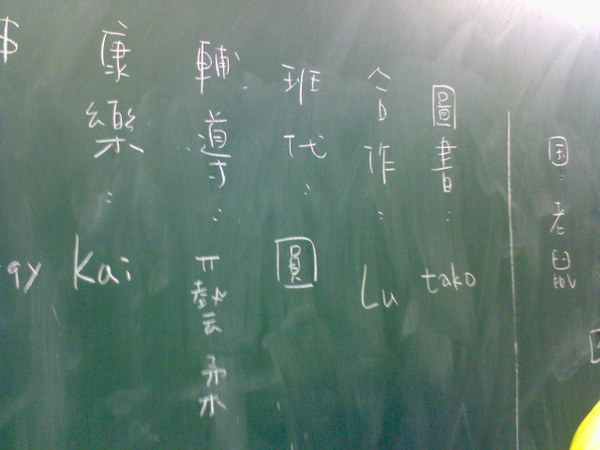 国：老鼠
圖書：tako
合作：Lu
班代：圓
輔導：藝柔
康樂：Kai
$